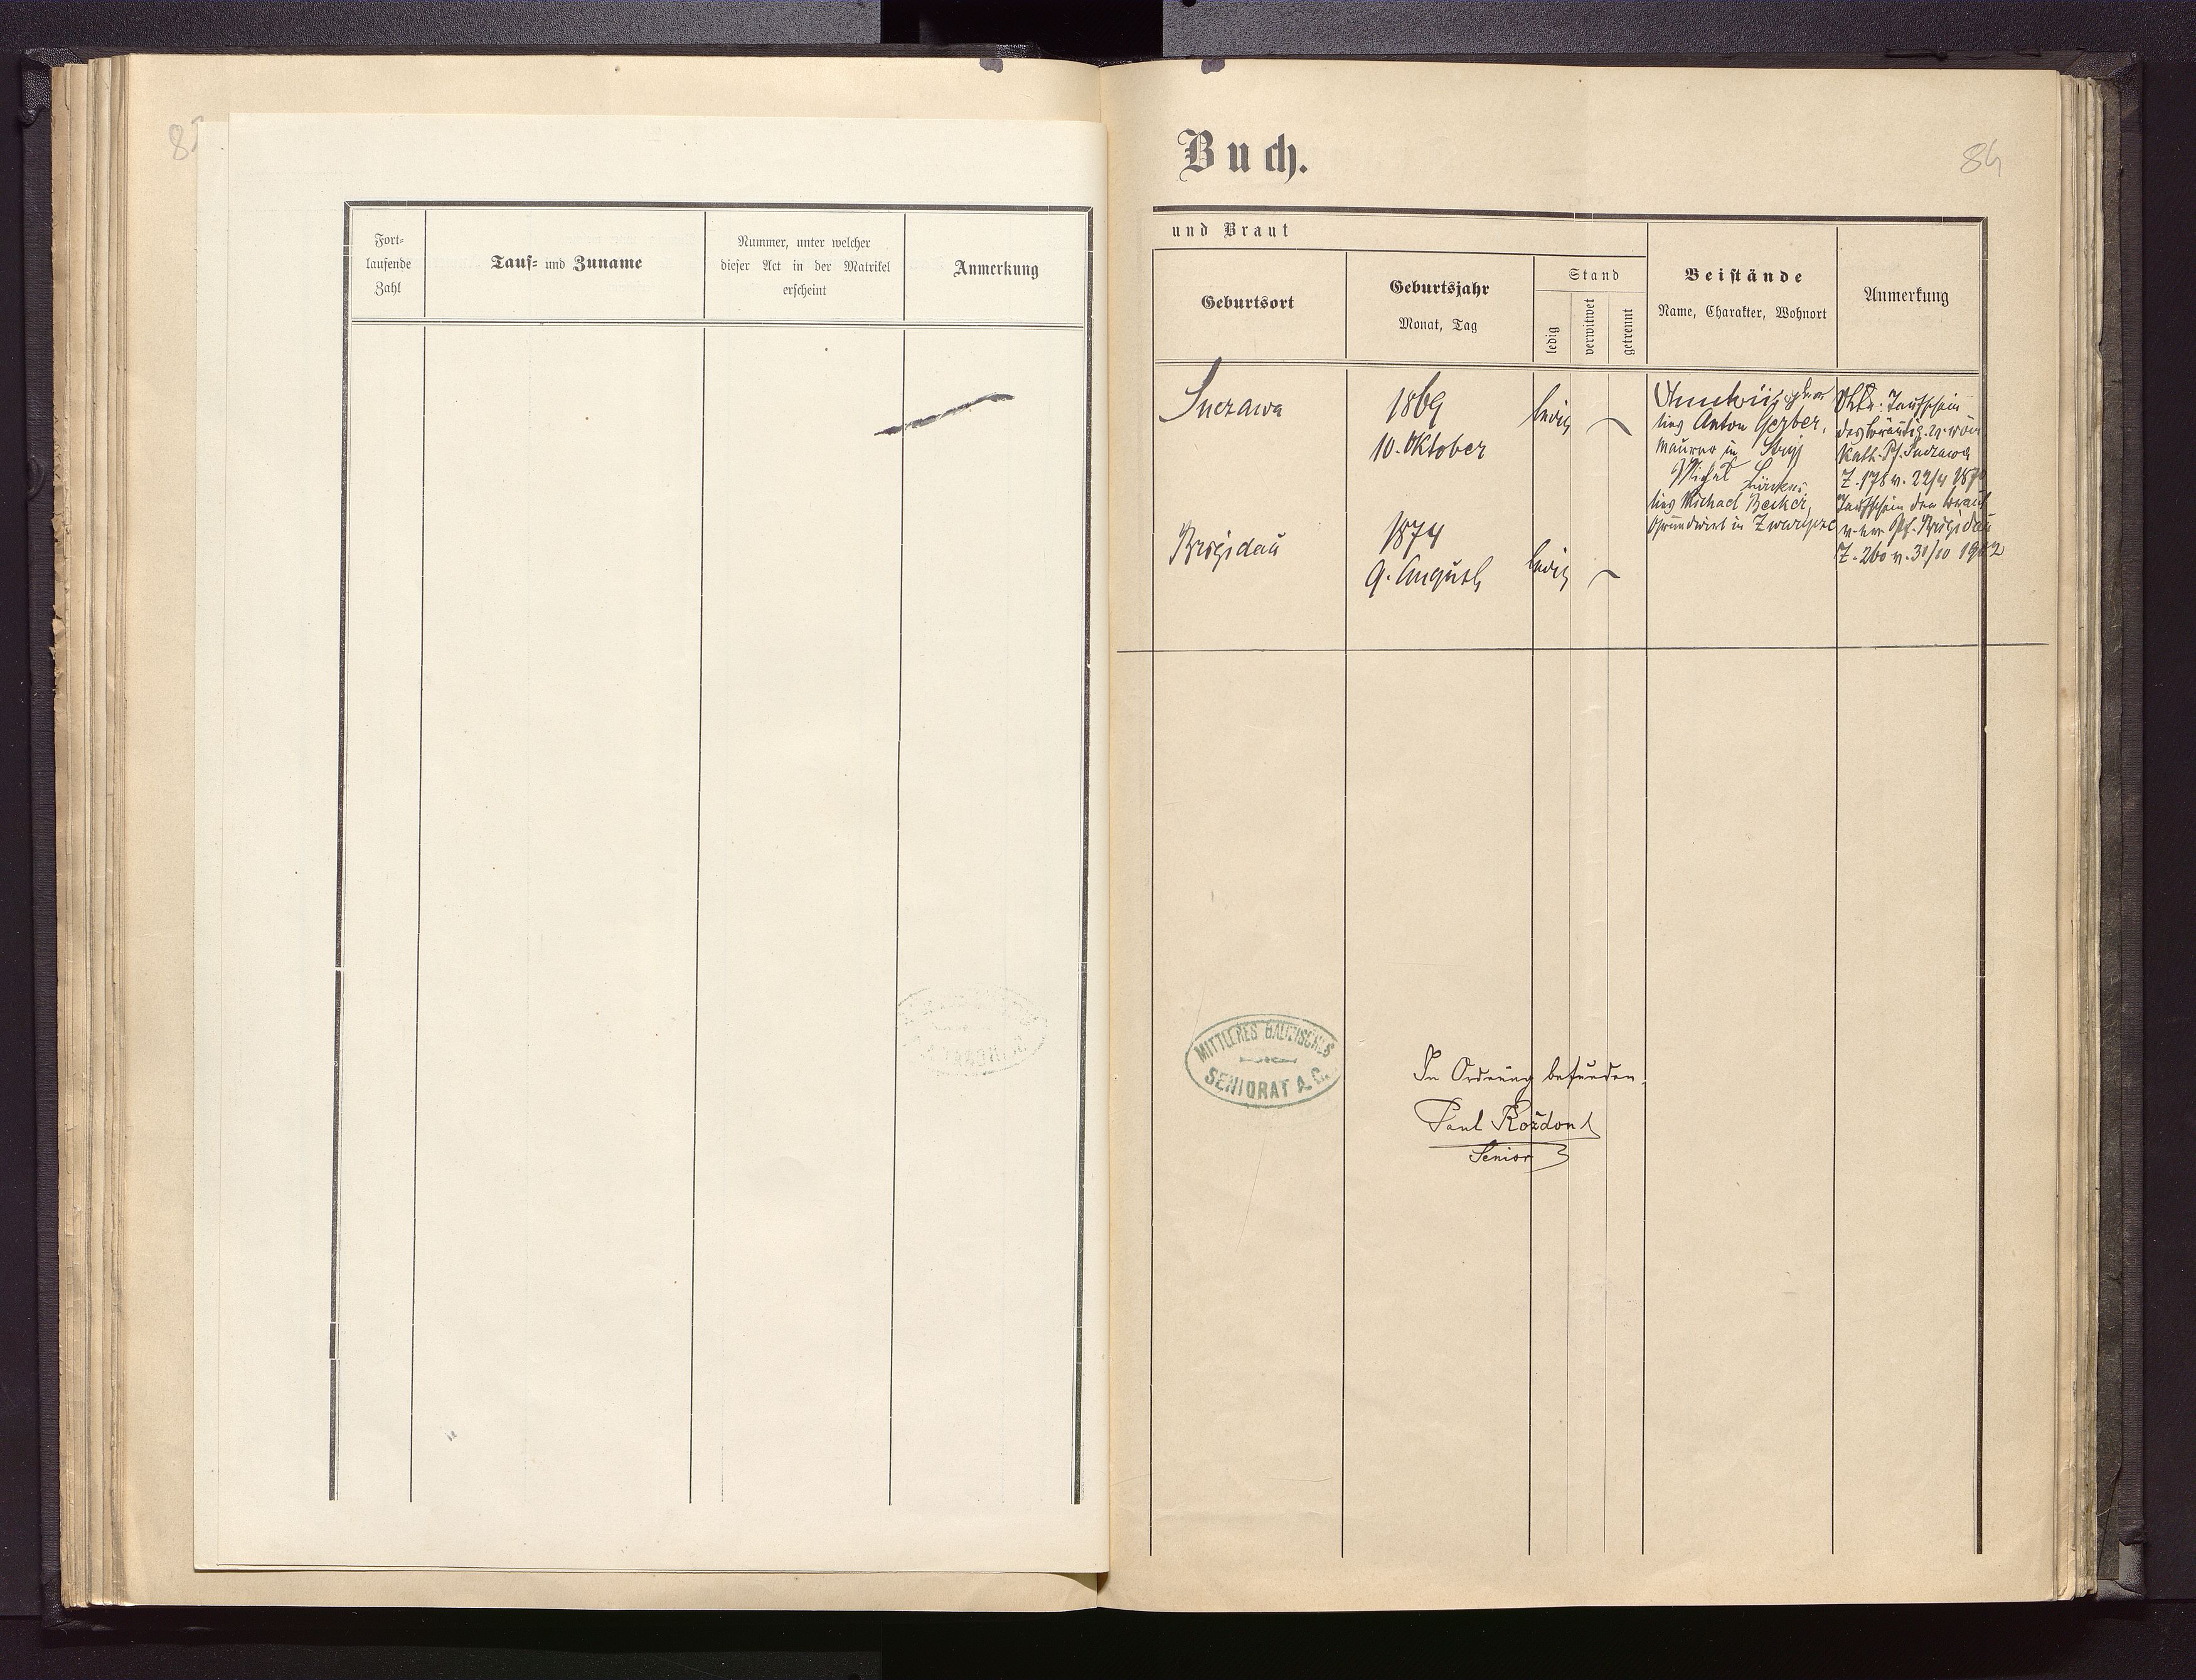 8
Fort-
laufende
Zahl
Tauf- und Zuname
Nummer, unter welcher
dieser Act in der Matrikel
erscheint
Anmerkung
Buch.
84
und Braut
Geburtsort
Geburtsjahr
Monat, Tag
Stand
ledig
verwitwet
getrennt
Beistände
Name, Charakter, Wohnort
Anmerkung
Suczawa
1869
10. Oktober
ledig
lies Anton Gerber,
Maurer in Stryj
Michal
lies Michael Becker,
Grundwirt in
Taufschein
des Bräutig. v. röm
Kath. Pf. Suczawa
Z. 178 v. 22/4
Taufschein der Braut
v. ev. Pf. Brigidau
Z. 260 v. 31/10 1902
Brigidau
1874
9. August
ledig
MITTLERES GALIZISCHES
SENIORAT A. C.
In Ordnung befunden.
Paul Rożdon
Senior